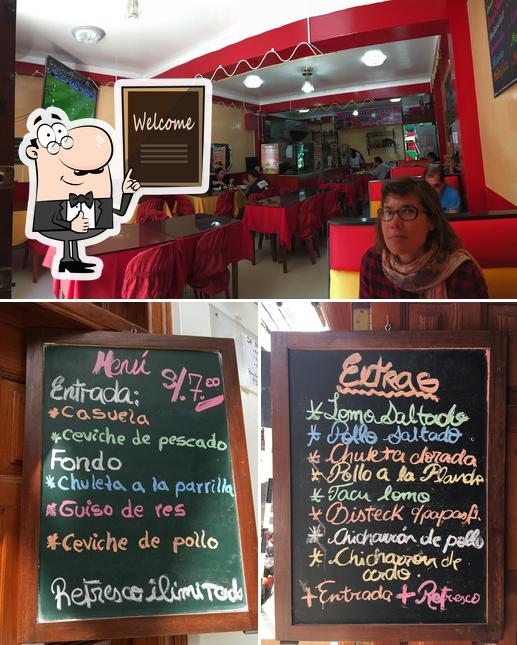 Welcome
Menú S/.7.00
Entrada:
* Casuela
* Ceviche de pescado
Fondo
* Chuleta a la parrilla
* Guiso de res
* Ceviche de pollo
Refresco ilimitado
Extras
* Lomo Saltado
* Pollo Saltado
* Chuleta dorada
* Pollo a la Plancha
* Tacu lomo
* Bisteck c/papas f.
* Chicharrón de pollo
* Chicharron de
cerdo.
+ Entrada + Refresco